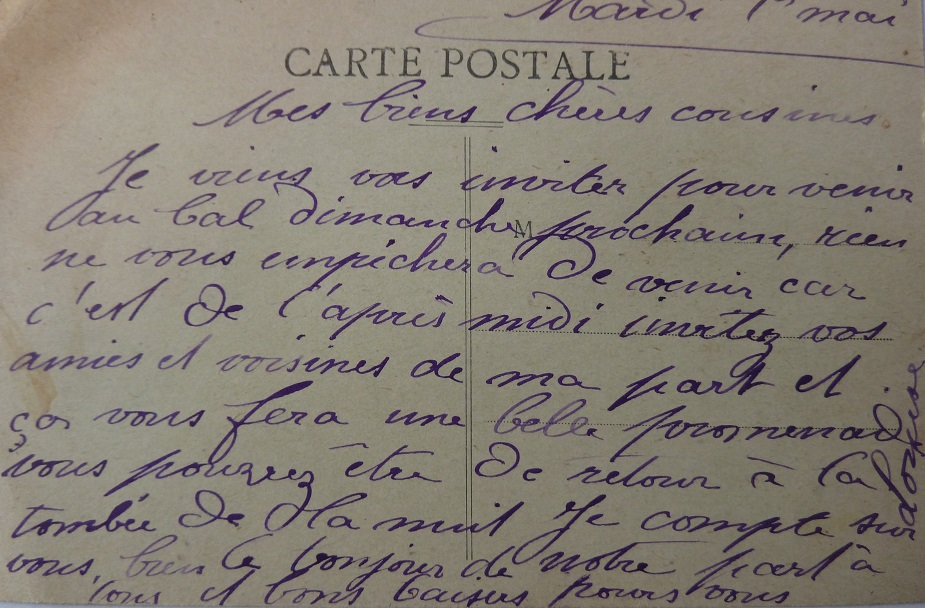 Mardi 1er mai
CARTE POSTALE
Mes biens chères cousines
Je viens vous inviter pour venir
au bal dimanche prochain, rien
M
ne vous empêchera de venir car
c'est de l'après midi invitez vos
amies et voisines de ma part et
ça vous fera une belle promenade
vous pourrez être de retour à la
tombée de la nuit Je compte sur
vous, bien le bonjour de notre part à
tous et bons baisers pour vous